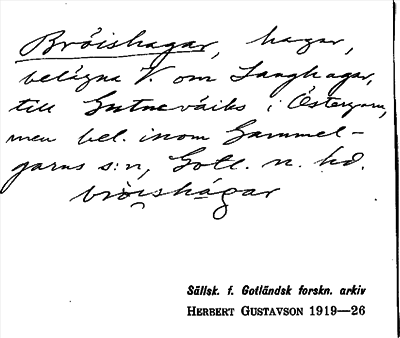 Bröishagar, hagar,
belägna V. om Langhagar,
till Gutneväiks i Östergarn,
men bel. inom Gammel-
garns s:n, Gotl. n. hd.
bròi̯shágar
Sällsk. f. Gotländsk forskn. arkiv
HERBERT GUSTAVSON 1919—26